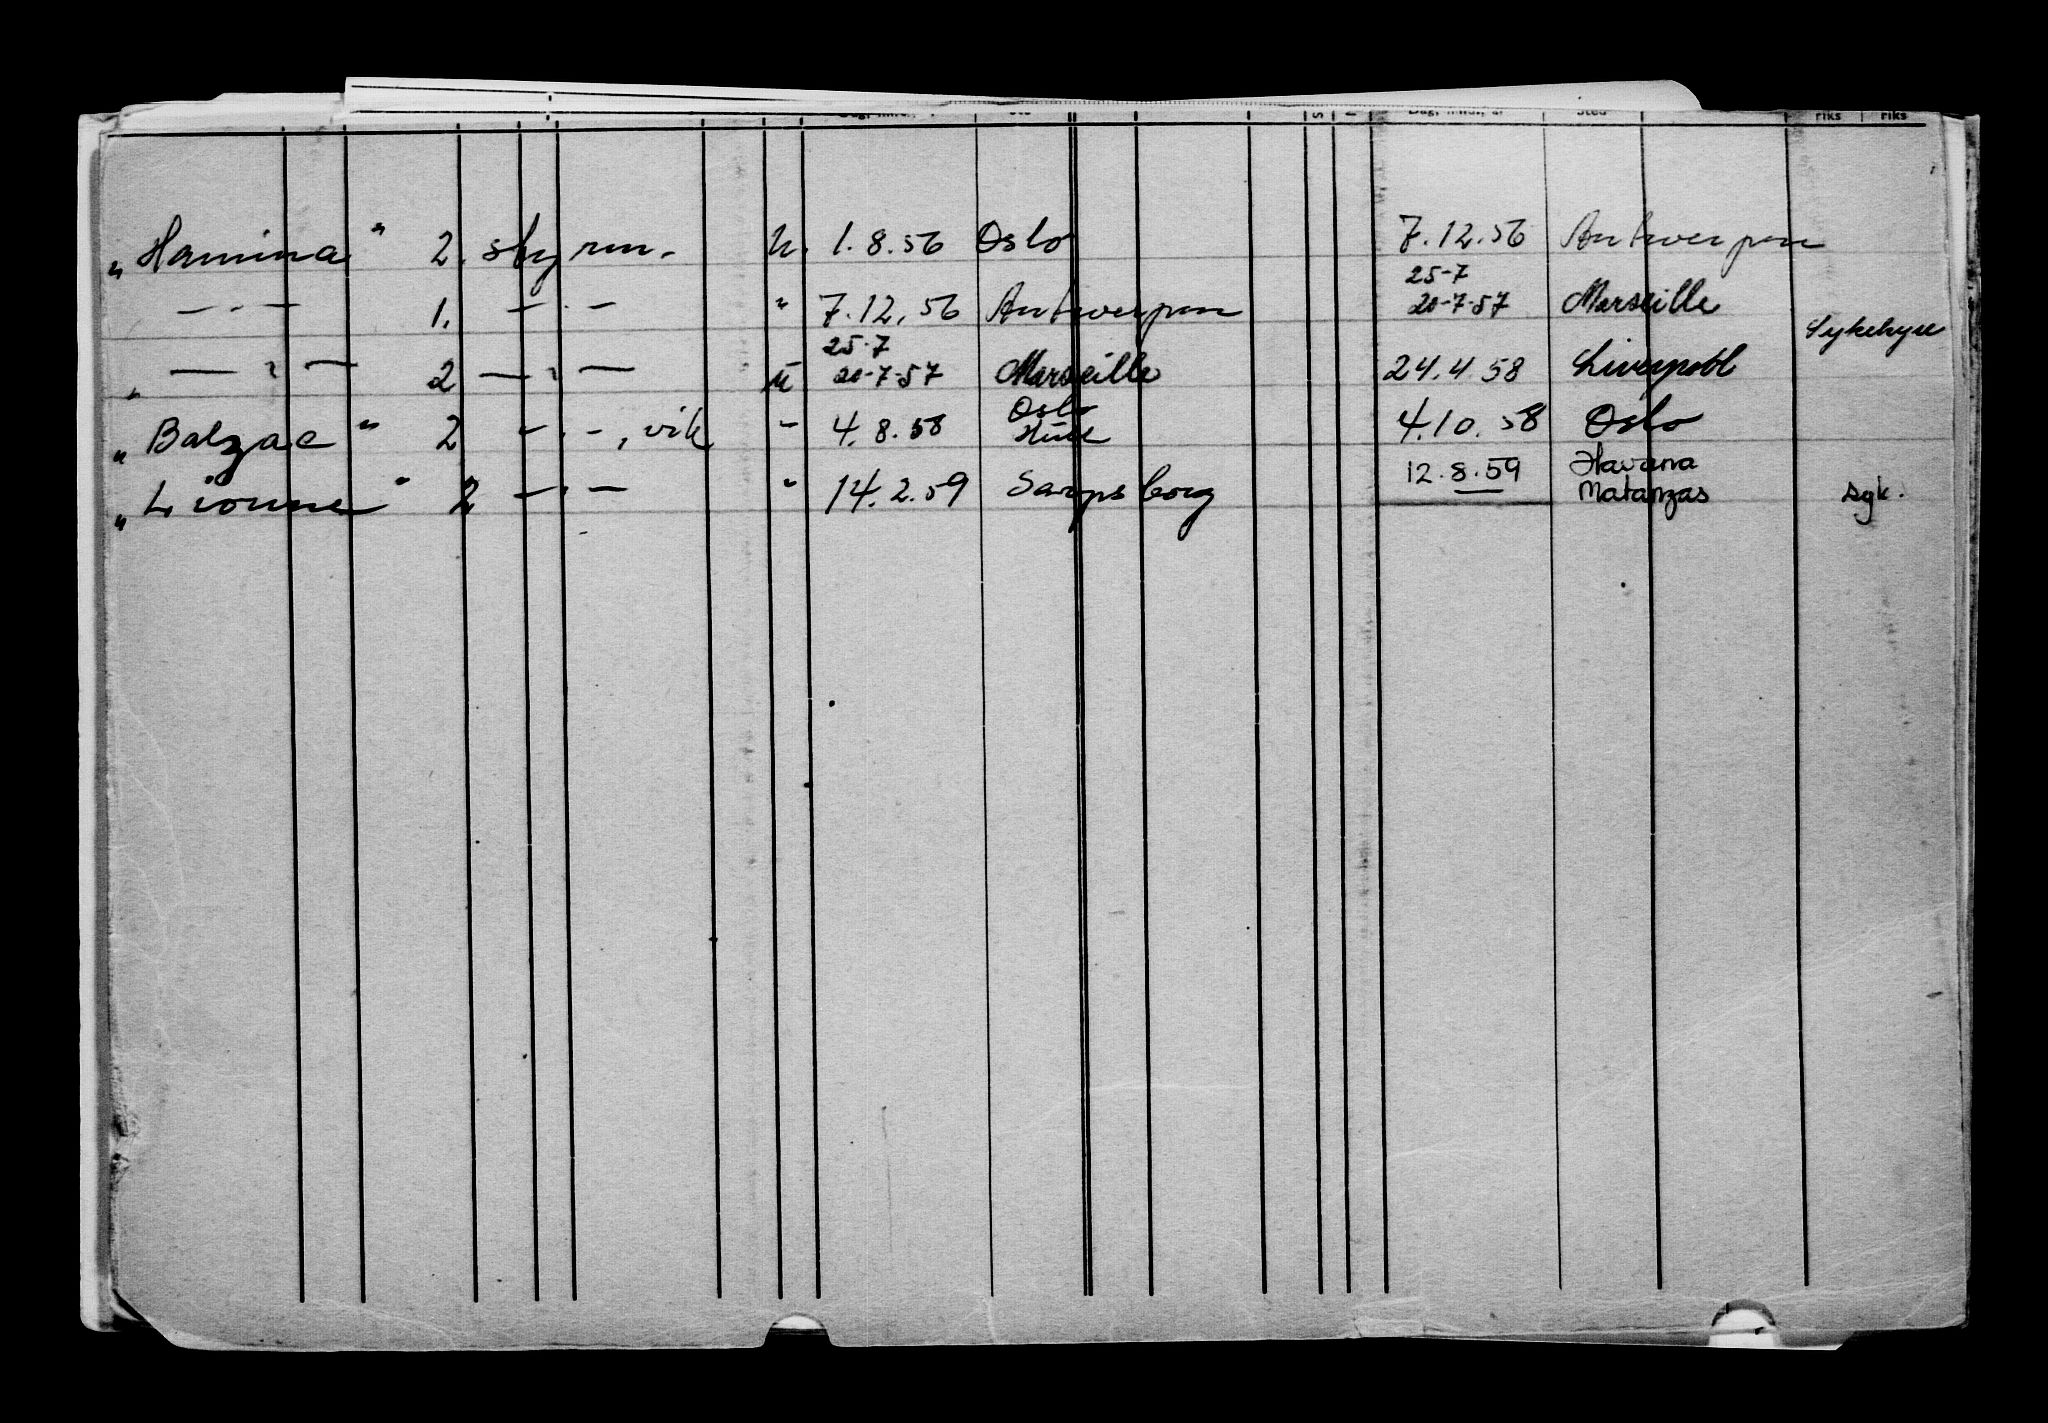 Sted riks riks
„Hamina" 2. styrm. u. 1.8.56 Oslo 7.12.56 Antwerpen
25-7
— " — 1. — " — " 7.12.56 Antwerpen 20-7-57 Marseille
25-7 Sykehyre
„ — " — 2 — " — u 20-7-57 Marseille 24.4.58 Liverpool
Oslo
„Balzac" 2 — " —, vik " 4.8.58 4.10.58 Oslo
12.8.59 Havana
„Lionne" 2 — " — " 14.2.59 Sarpsborg Matanzas syk.